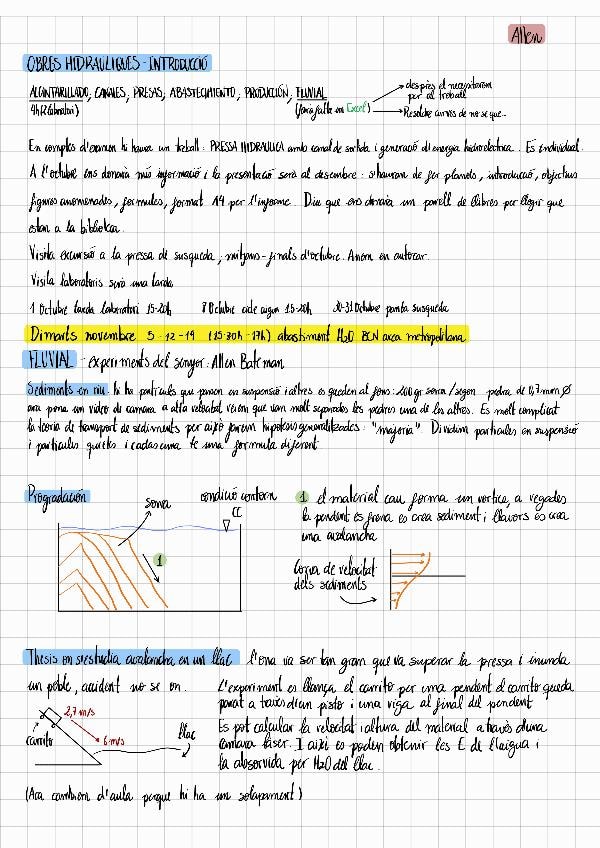 Allen
OBRES HIDRAULIQUES - INTRODUCCIÓ
ALCANTARILLADO, CANALES, PRESAS, ABASTECIMIENTO, PRODUCCIÓN, FLUVIAL
4h (2 laboratori)
(farà falta en Excel)
després el necesitarem per al treball
Resoldre curves de no se que..
En comptes d'examen hi haura un treball: PRESSA HIDRAULICA amb canal de sortida i generació d'energia hidroelectrica. És individual.
A l'octubre ens donara més informació i la presentació serà al desembre: s'hauran de fer planols, introducció, objectius
figures anomenades, formules, format A4 per l'informe. Diu que ens donarà un parell de llibres per llegir que
estan a la biblioteca.
Visita excursió a la pressa de susqueda; mitjans-finals d'octubre. Anem en autocar.
Visita laboratoris sera una tarda
1 Octubre tarda laboratori 15-20h 8 Octubre cicle aigua 15-20h 30-31 Octubre panta susqueda
Dimarts novembre 5-12-19 (15:30h-17h) abastiment H2O BCN area metropolitana
FLUVIAL - experiments del senyor: Allen Bateman
Sediments en riu: hi ha particules que passen en suspensió i altres es queden al fons: 200 gr sorra/segon pedra de 0,7mm Ø
ara posa un video de camara a alta velocitat veiem que van molt separades les pedres una de les altres. És molt complicat
la teoria de transport de sediments per això farem hipotesis generalitzades: "majoria" Dividim particules en suspensió
i particules quietes i cadascuna te una formula diferent
Progradación
sorra
condició contorn
CC
1
1 el material cau forma un vertice, a vegades
la pendent es frena es crea sediment i llavors es crea
una avalancha
Corva de velocitat
dels sediments
Thesis on s'estudia avalancha en un llac l'ona va ser tan gran que va superar la pressa i inunda
un poble, accident no se on.
L'experiment es llança el carrito per una pendent el carrito queda
parat a través d'un pisto i una viga al final del pendent
Es pot calcular la velocitat i altura del material a través d'una
camara laser. I així es poden obtenir les E de l'aigua i
la absorvida per H2O del llac.
2,7 m/s
6 m/s
carrito
llac
(Ara cambiem d'aula perque hi ha un solapament)